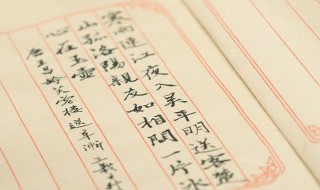 寒雨連江夜入吴平明送客楚
山孤洛陽親友如相問一片冰
心在玉壺
唐王昌齡芙蓉樓送辛漸